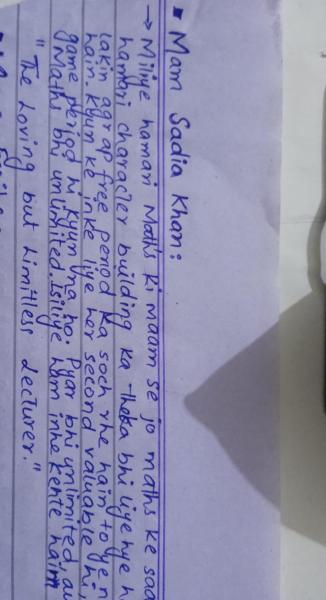 Mam Sadia Khan:
→ Miliye hamari Maths ki maam se jo maths ke saa
hamari character building ka theka bhi liye hye h
lakin agr ap free period ka soch rhe hain to ye n
hain. Kyun ke inke liye her second valuable hi,
game period hi kyun na ho. Pyar bhi unlimited, au
Maths bhi unlimited. Isiliye hum inhe kehte hain
"The Loving but Limitless Lecturer."